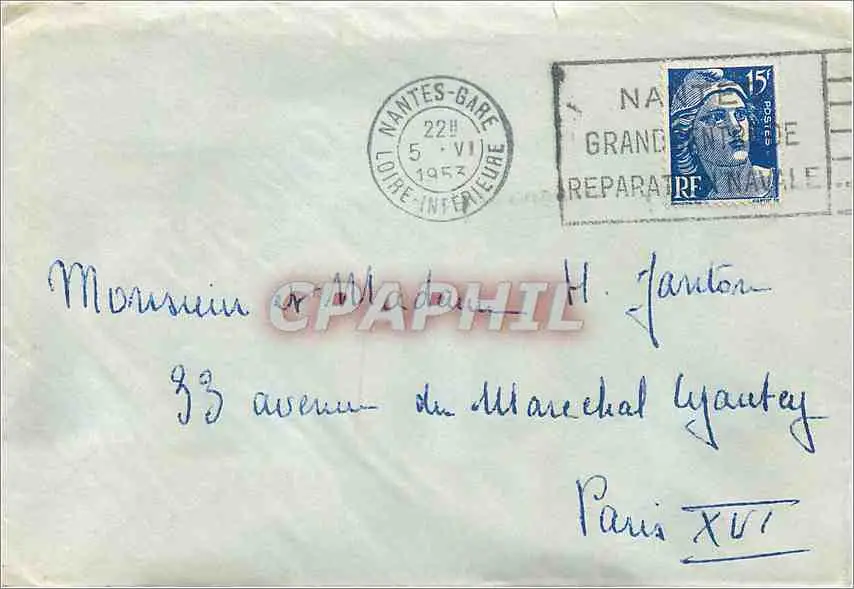 NANTES-GARE
22H
5 · VI
1953
LOIRE-INFÉRIEURE
NANTE
GRAND CENTRE DE
REPARATION NAVALE
15F
POSTES
RF
Monsieur et Madame H. Janton
33 avenue du Marechal Lyautey
Paris XVI
CPAPHIL